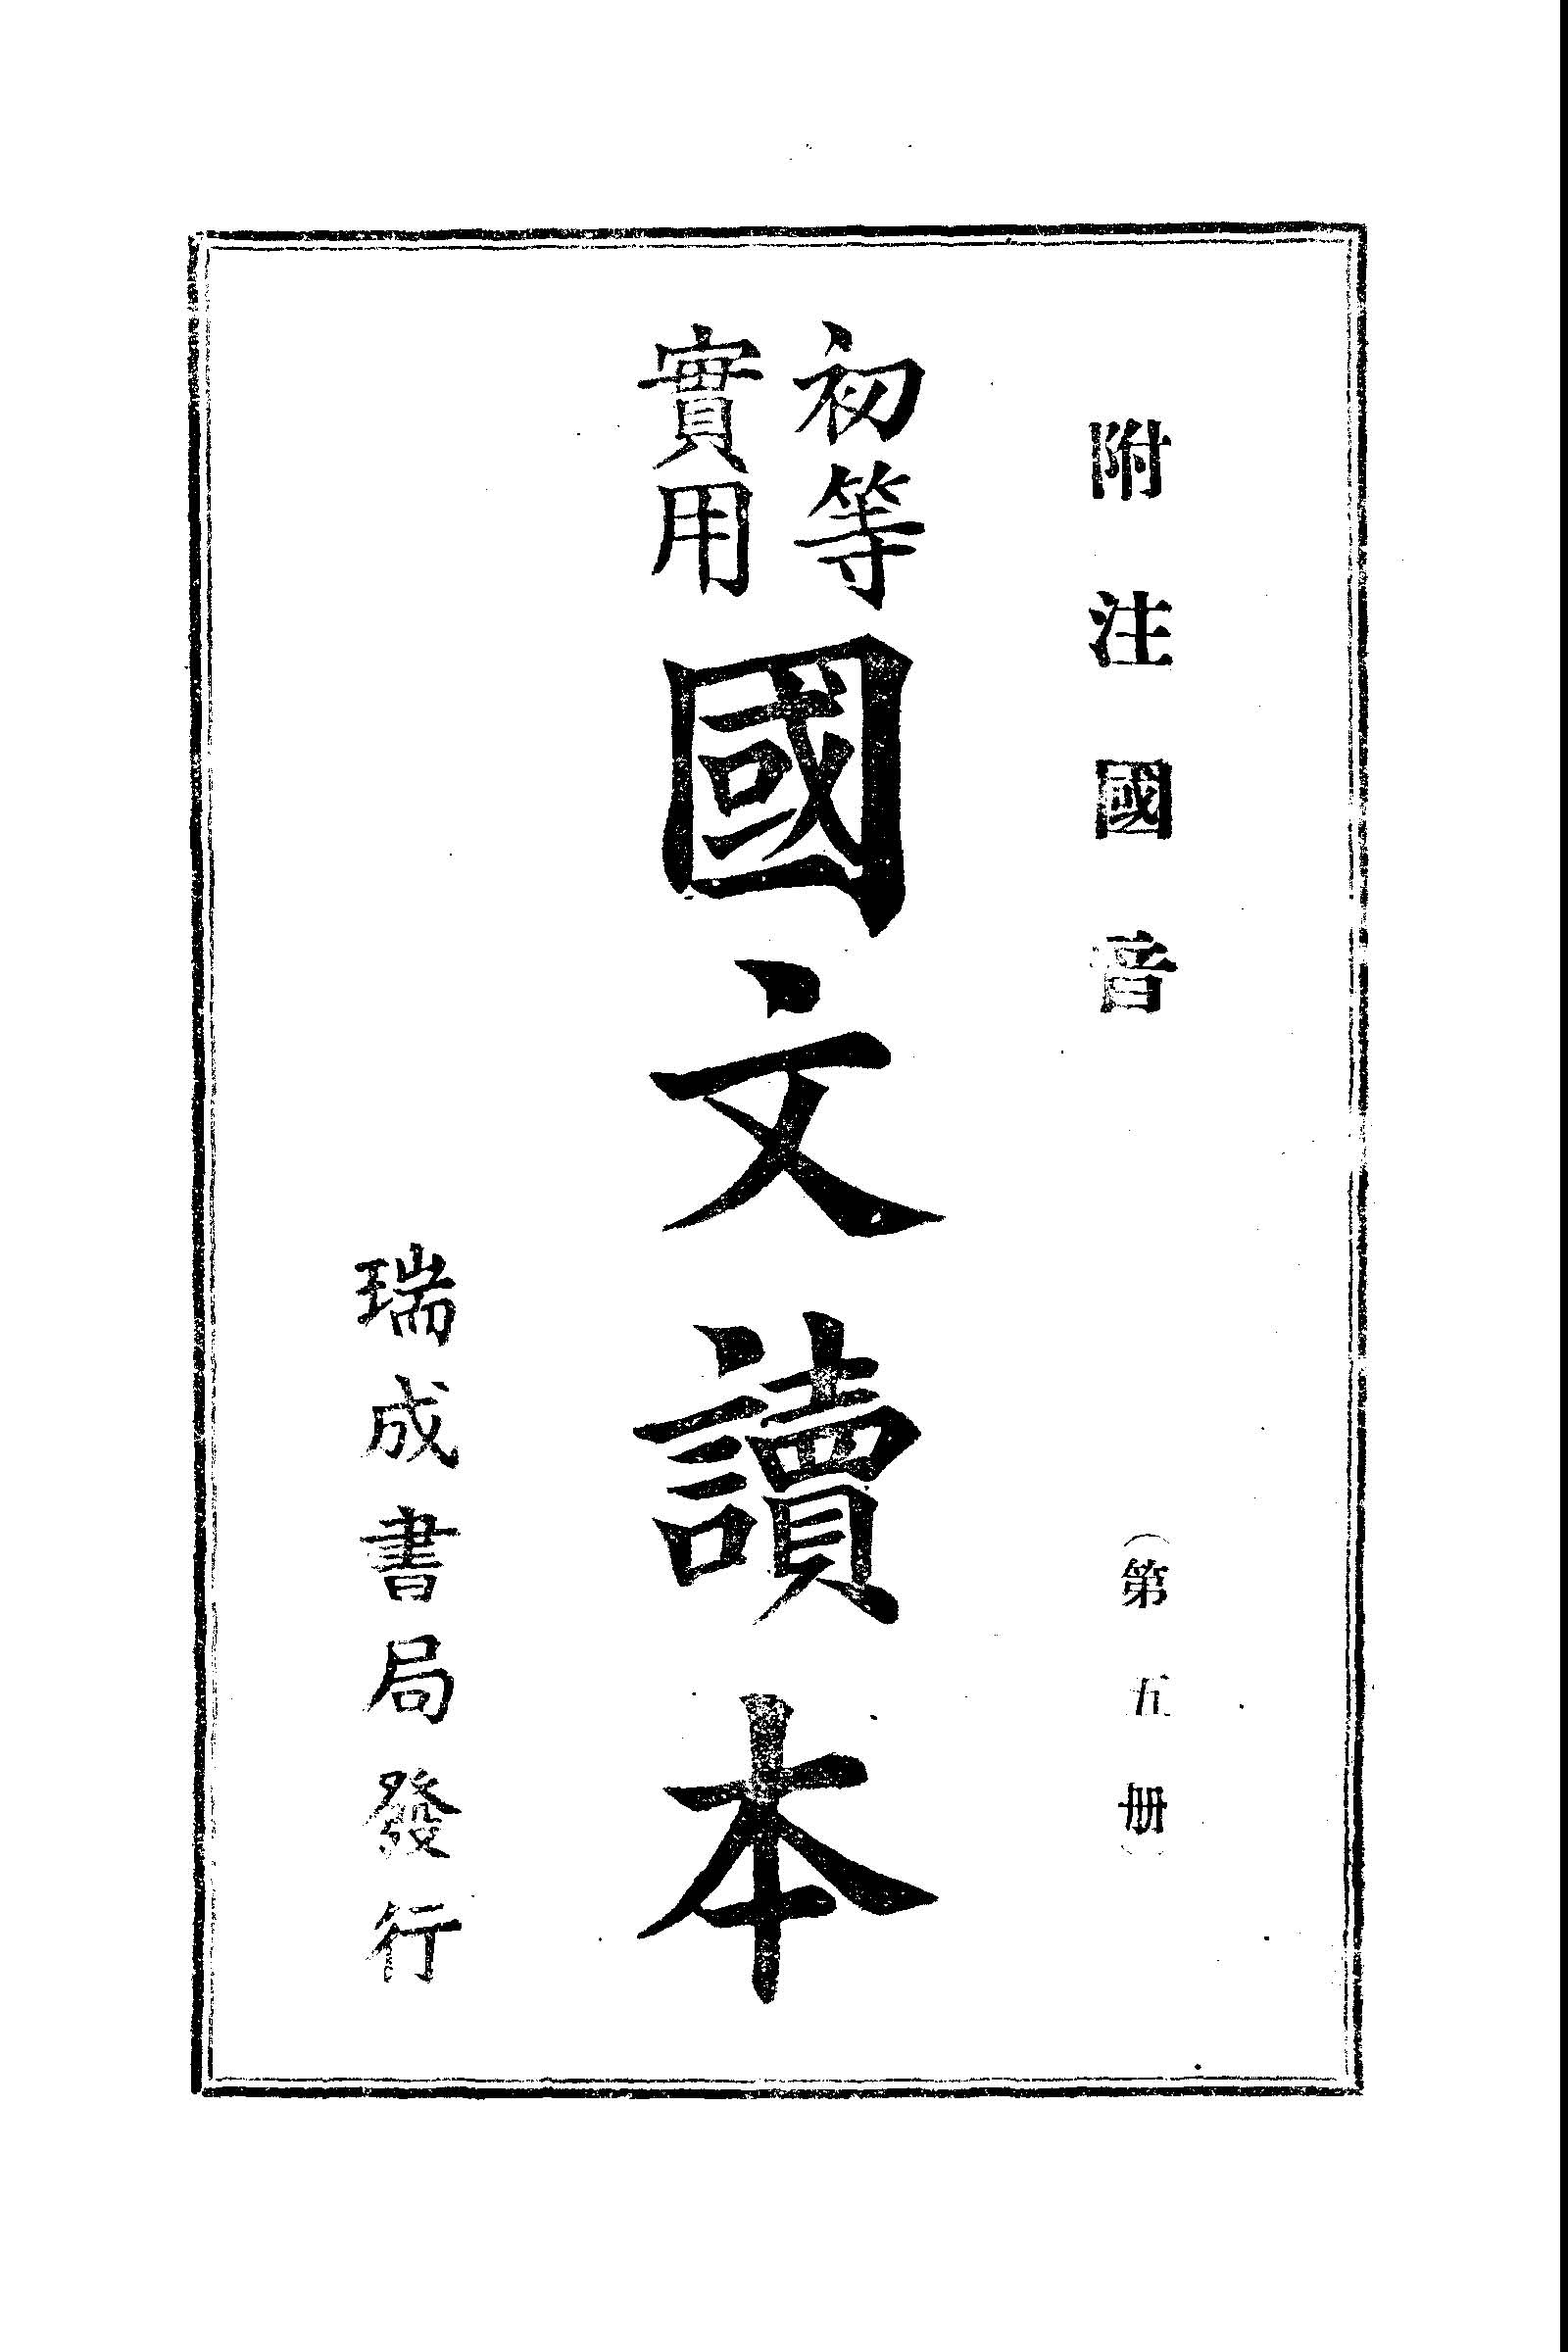 附注國音
（第五册）
初等
實用
國文讀本
瑞成書局發行